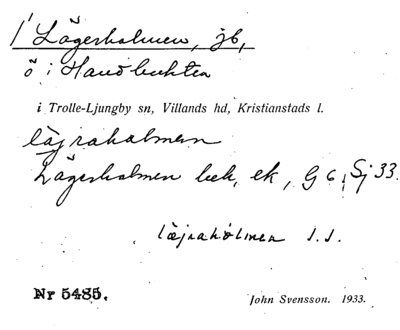 Lägerholmen, jb,
ö i Hanöbukten
i Trolle-Ljungby sn, Villands hd, Kristianstads l.
läjraholmen
Lägerholmen bek, ek, G 6, Sj 33.
läjraholmen s.s.
Nr 5485. John Svensson. 1933.